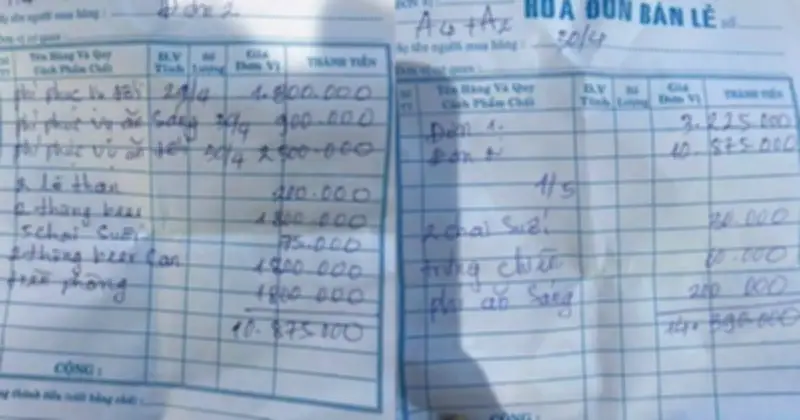 Đơn 2
Họ tên người mua hàng :
Đơn vị cơ quan :
Số TT Tên Hàng Và Quy Cách Phẩm Chất Đ.V Tính Số Lượng Giá Đơn Vị THÀNH TIỀN
phí phục vụ 29/4 1.800.000
phí phục vụ ăn sáng 30/4 900.000
phí phục vụ ăn tối 30/4 2500.000
2 lò than 200.000
2 thùng beer 1800.000
5 chai suối 75.000
2 thùng beer Can 1800.000
phòng 1800.000
10.875.000
CỘNG :
HÓA ĐƠN BÁN LẺ SỐ
A4 + A2
Họ tên người mua hàng : 30/4
Đơn vị cơ quan :
Số TT Tên Hàng Và Quy Cách Phẩm Chất Đ.V Tính Số Lượng Giá Đơn Vị THÀNH TIỀN
Đơn 1. 3.225.000
Đơn 2 10.875.000
1/5
2 chai suối 30.000
trứng chiên 60.000
phí ăn sáng 200 000
14.390.000
CỘNG